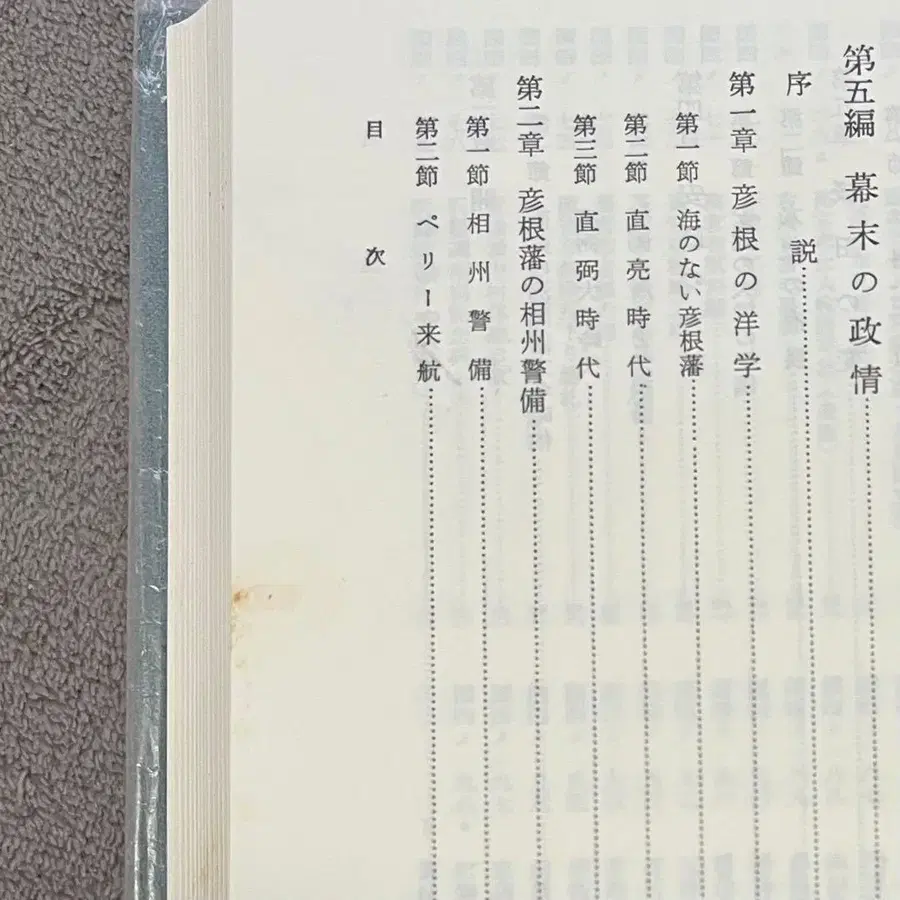 第五編 幕末の政情
序 説
第一章 彦根の洋学
第一節 海のない彦根藩
第二節 直亮時代
第三節 直弼時代
第二章 彦根藩の相州警備
第一節 相州警備
第二節 ペリー来航
目 次